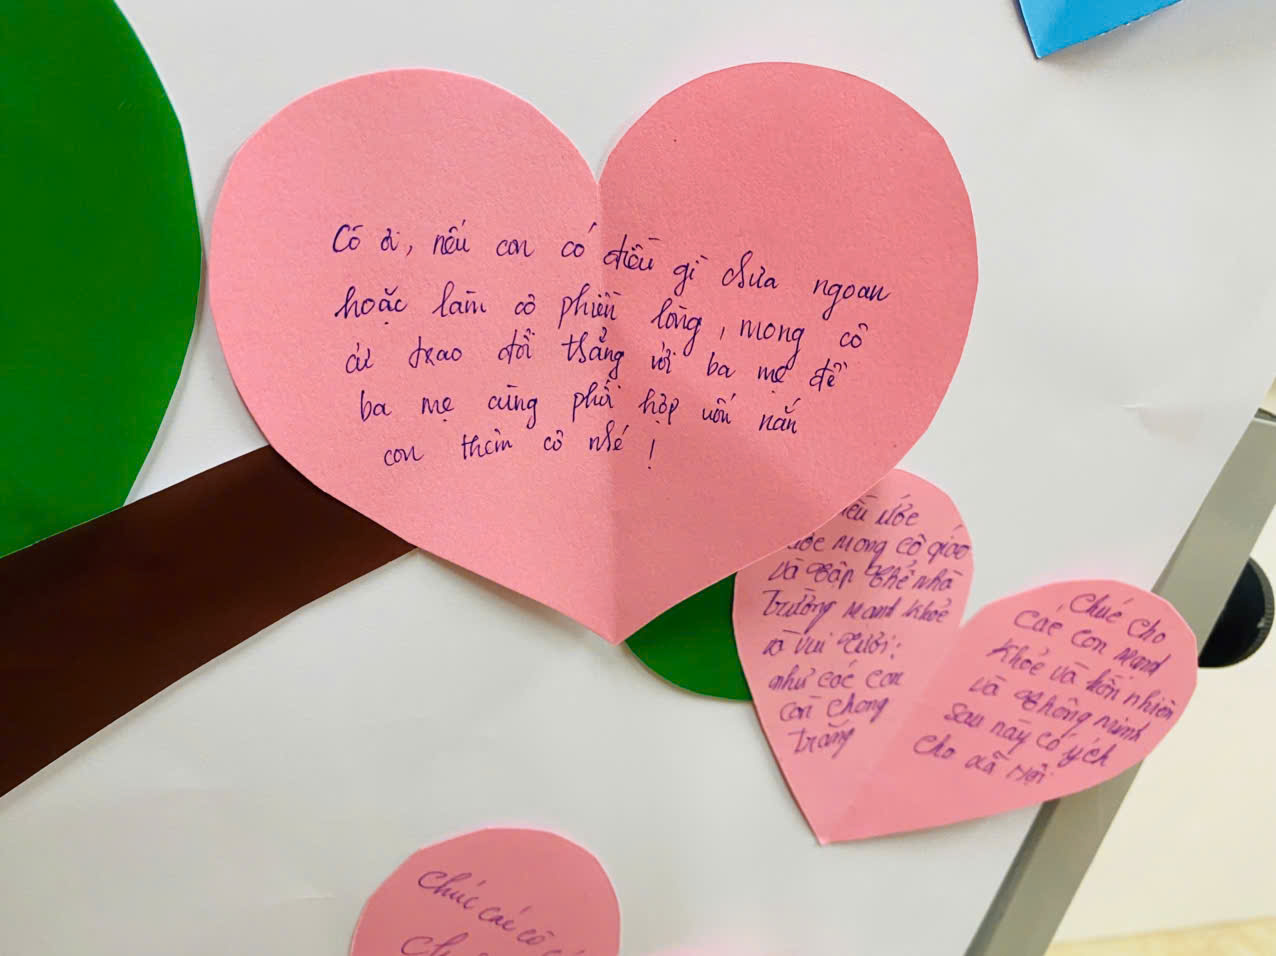 Cô ơi, nếu con có điều gì chưa ngoan
hoặc làm cô phiền lòng, mong cô
cứ trao đổi thẳng với ba mẹ để
ba mẹ cùng phối hợp uốn nắn
con thêm cô nhé !
ước
mong cô giáo
và tập thể nhà
trường mạnh khoẻ
và vui tươi:
như các con
còn trong
trắng
Chúc cho
các con mạnh
khoẻ và hồn nhiên
và thông minh
sau này có ích
cho xã hội
Chúc các cô